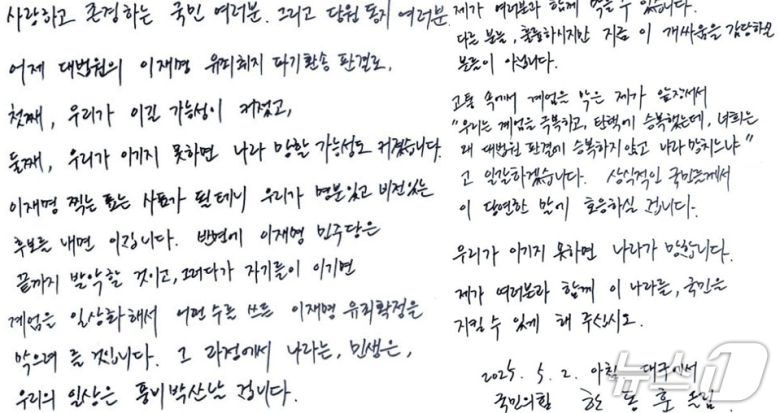 사랑하고 존경하는 국민 여러분. 그리고 당원 동지 여러분.
어제 대법원의 이재명 유죄취지 파기환송 판결로,
첫째, 우리가 이길 가능성이 커졌고,
둘째, 우리가 이기지 못하면 나라 망할 가능성도 커졌습니다.
이재명 찍는 표는 사표가 될테니 우리가 명분있고 비전있는
후보를 내면 이깁니다. 반면에 이재명 민주당은
끝까지 발악할 것이고, 그러다가 자기들이 이기면
계엄을 일상화해서 어떤 수를 쓰든 이재명 유죄확정을
막으려 들 것입니다. 그 과정에서 나라는, 민생은,
우리의 일상은 풍비박산날 겁니다.
제가 여러분과 함께 막을 수 있습니다.
다른 분들, 훌륭하시지만 지금 이 개싸움을 감당하실
분들이 아닙니다.
고통 속에서 계엄을 막은 제가 앞장서서
"우리는 계엄을 극복하고, 탄핵에 승복했는데, 너희는
왜 대법원 판결에 승복하지 않고 나라 망치느냐"
고 일갈하겠습니다. 상식적인 국민들께서
이 당연한 말에 호응하실 겁니다.
우리가 이기지 못하면 나라가 망합니다.
제가 여러분과 함께 이 나라를, 국민을
지킬 수 있게 해 주십시오.
2025. 5. 2. 아침 대구에서
국민의힘 한동훈 올림
뉴스1